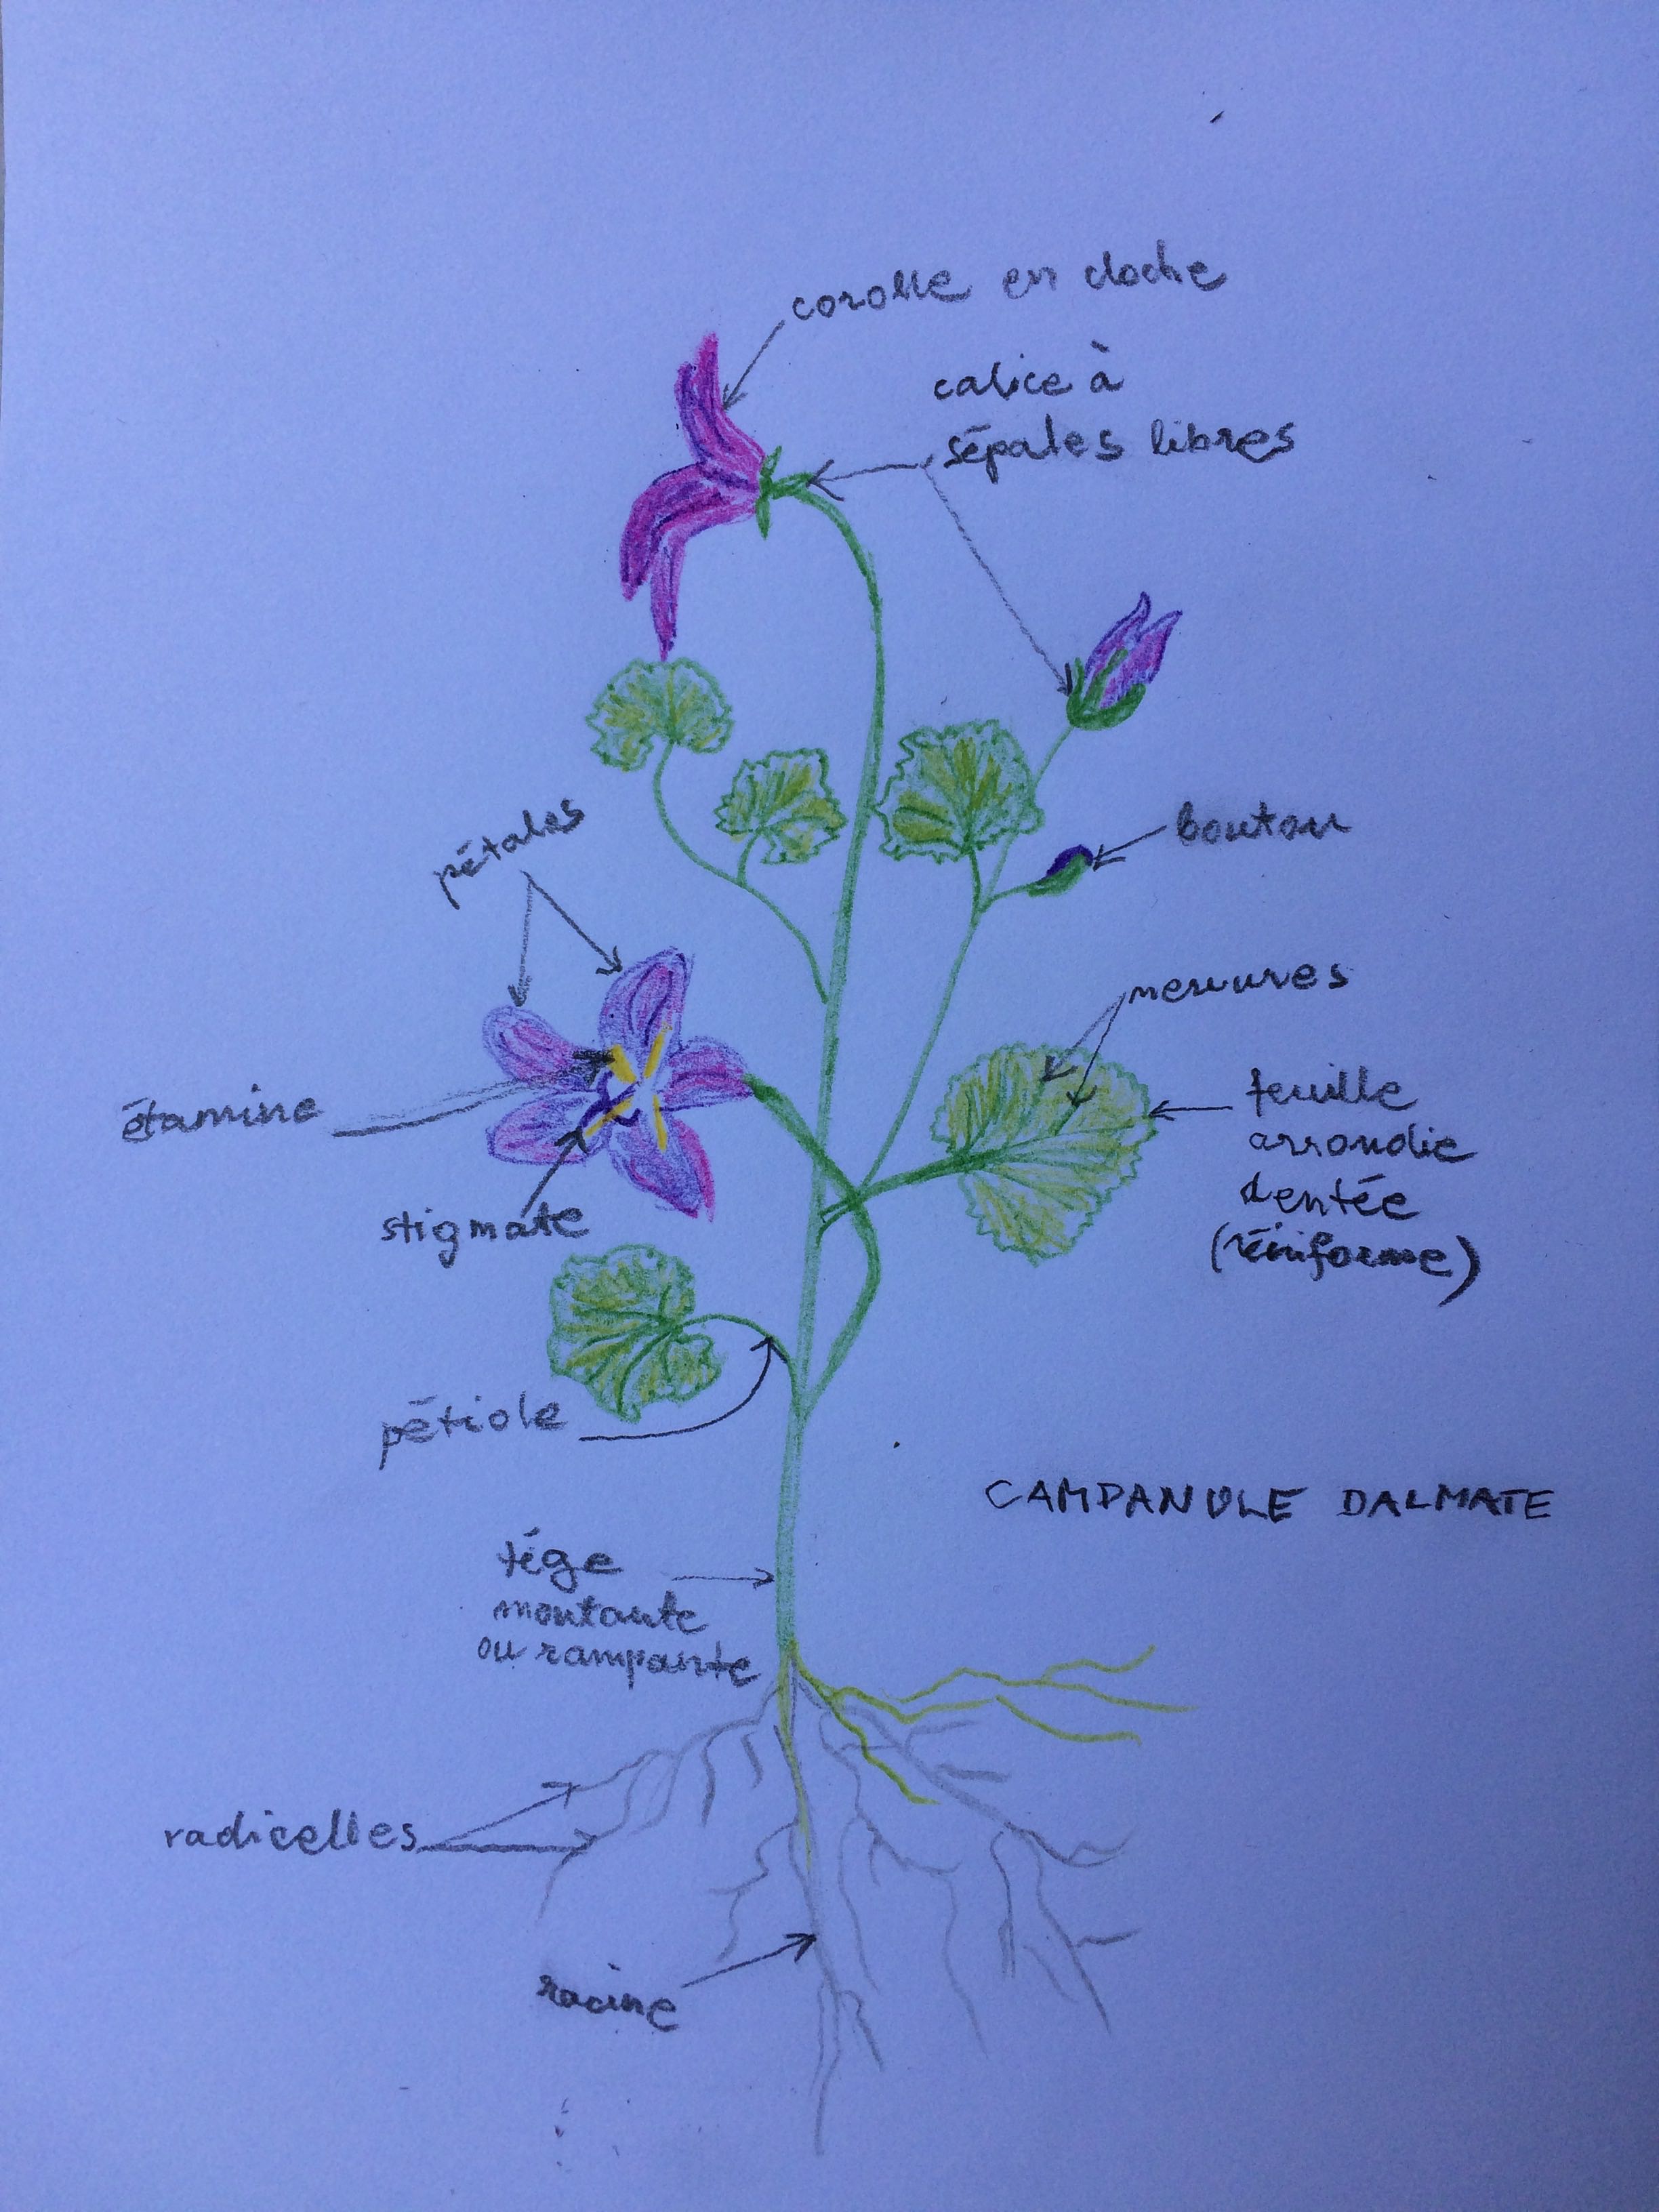 corolle en cloche
calice à
sépales libres
pétales
bouton
nervures
étamine
feuille
arrondie
dentée
(réniforme)
stigmate
pétiole
CAMPANULE DALMATE
tige
montante
ou rampante
radicelles
racine